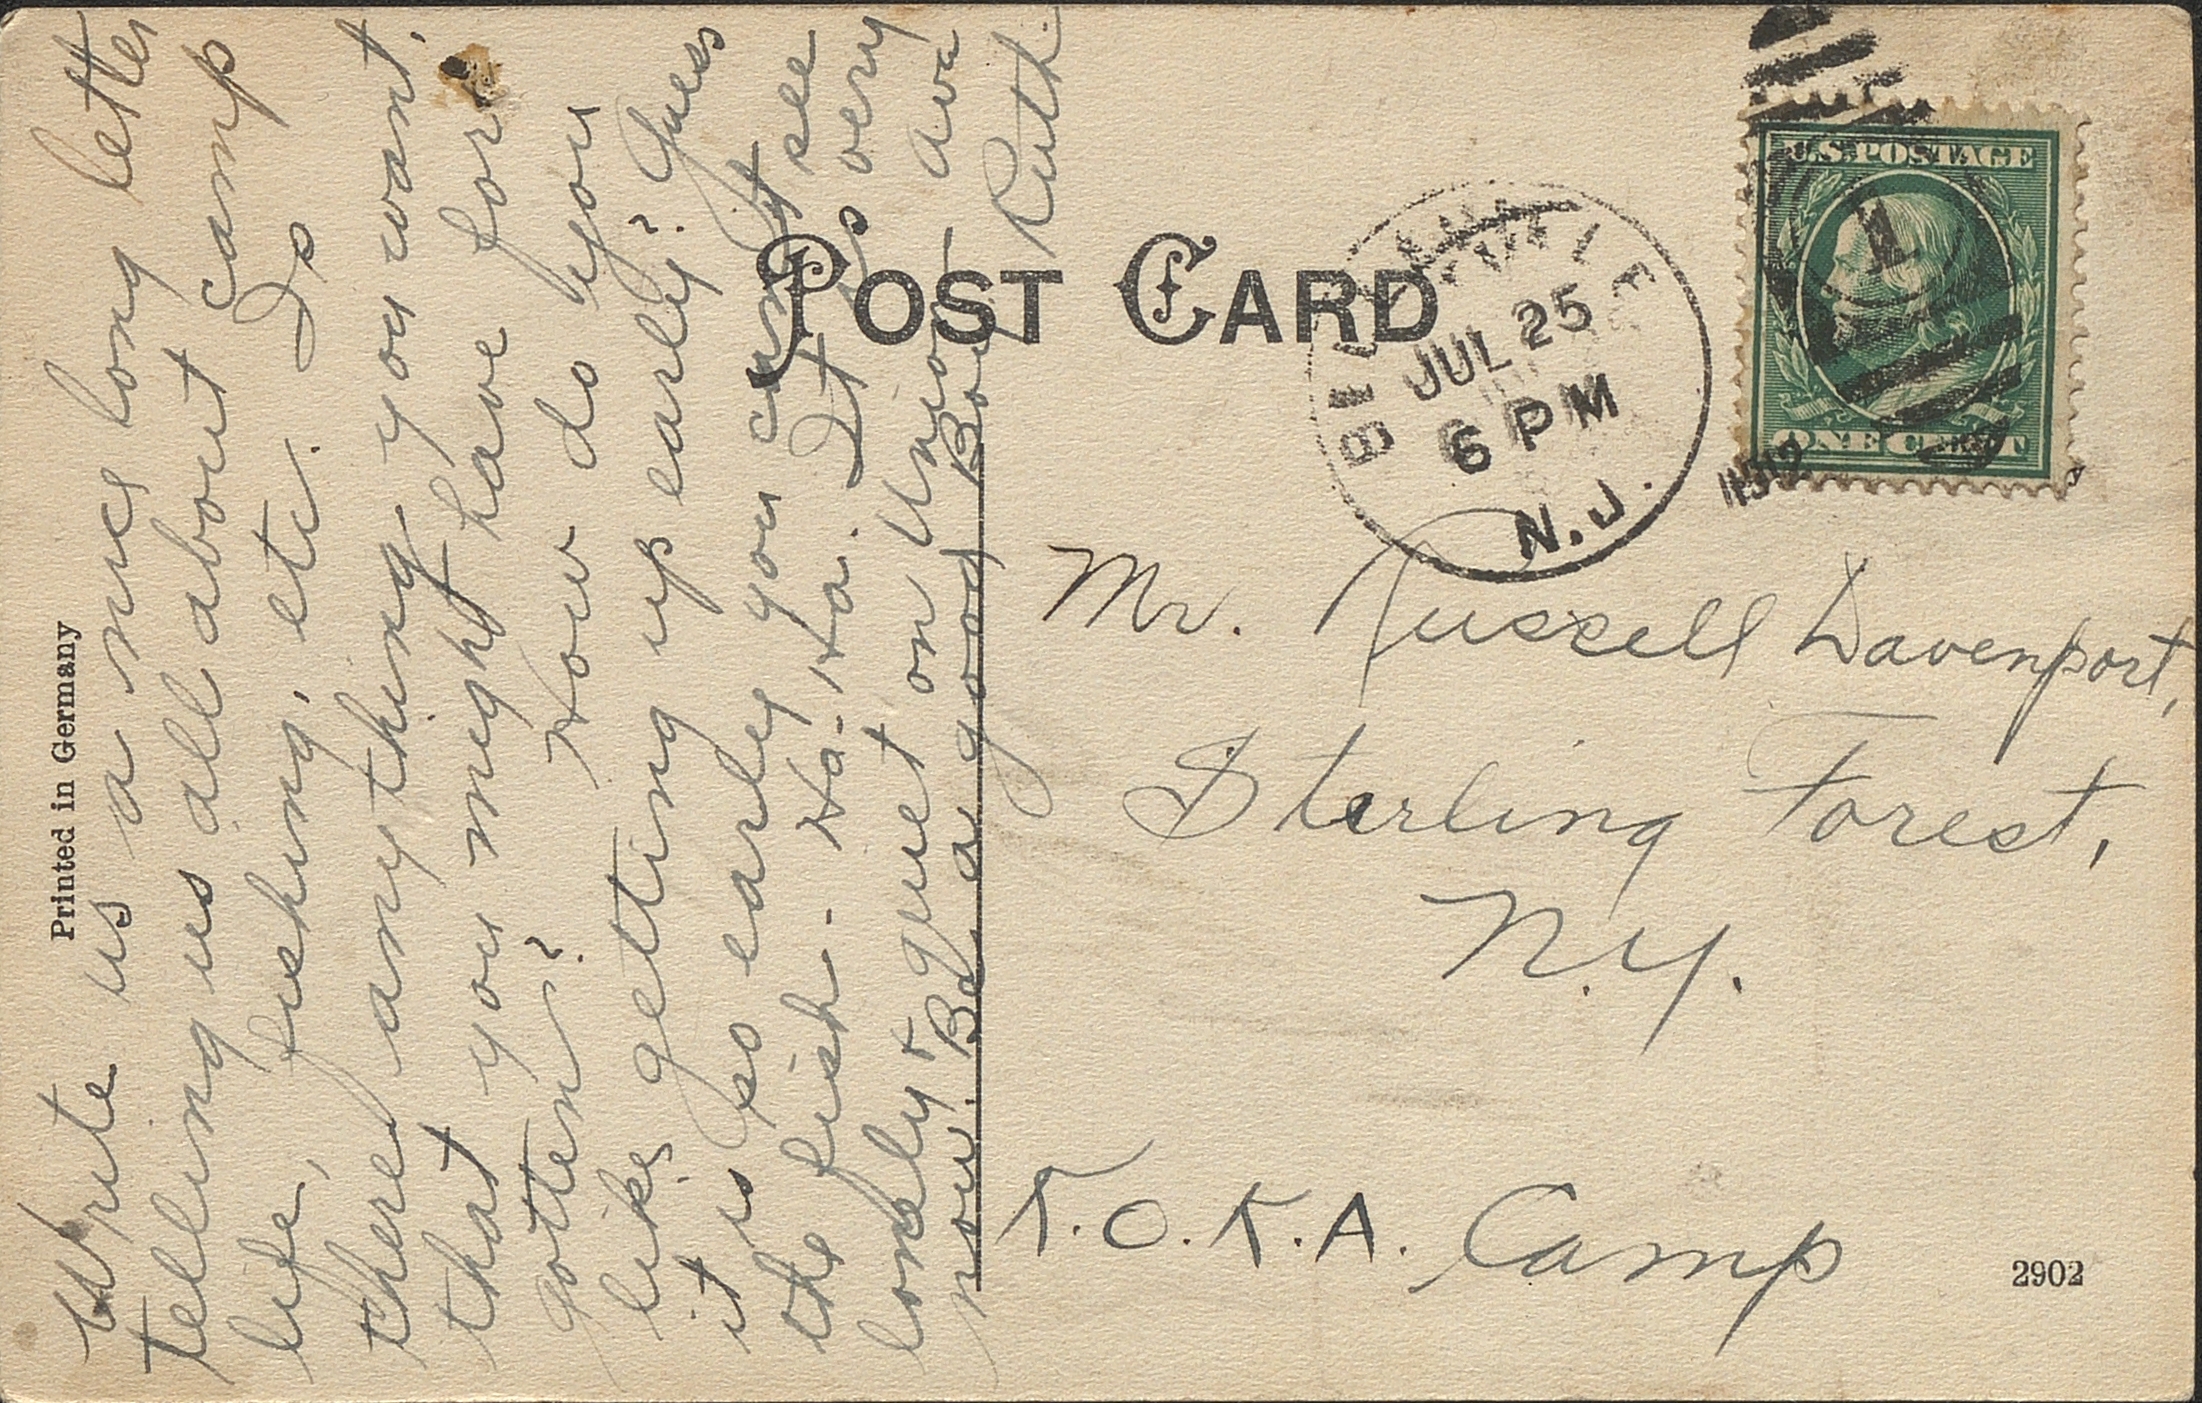 Write us a nice long letter
telling us all about camp
life, fishing, etc. Is
there anything you want
that you might have for-
gotten? How do you
like getting up early? Guess
it is so early you can't see
the fish. Ha-Ha. It is very
lonely & quiet on Union Ave
now. Be a good Boy
Ruth.
Printed in Germany
POST CARD
JUL 25
6 PM
N.J.
1912
U.S. POSTAGE
1
ONE CENT
Mr. Russell Davenport,
Sterling Forest,
N.Y.
K.O.K.A. Camp
2902